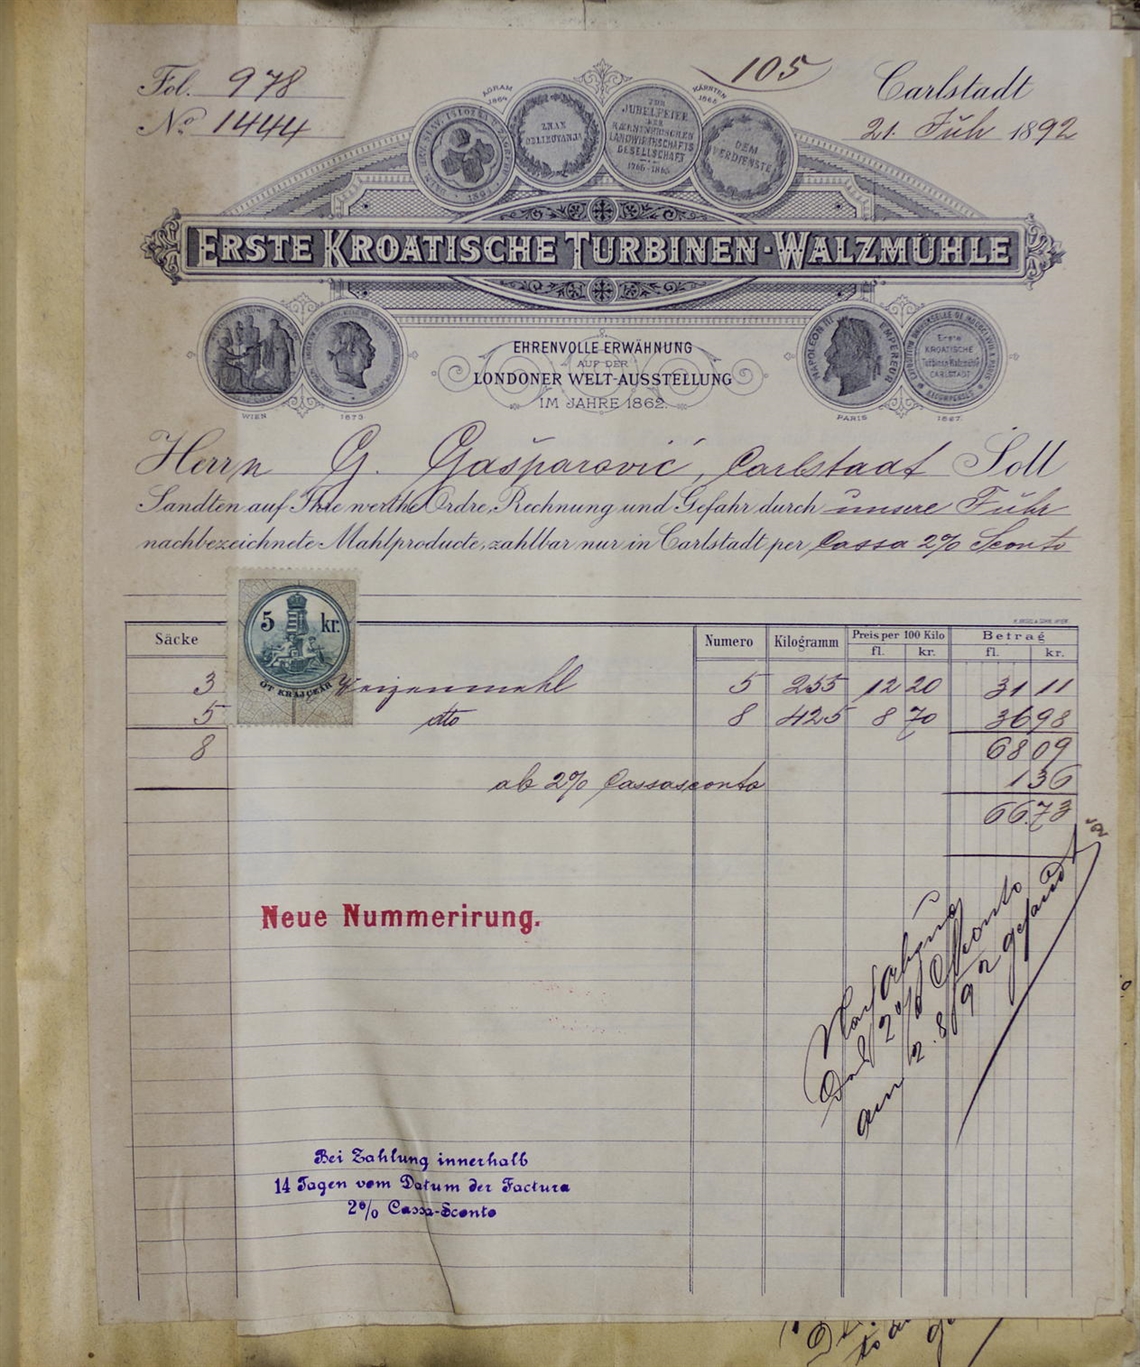 Fol. 978
105
Carlstadt
No 1444
21. Juli 1892
AGRAM
1864
KÄRNTEN
1865
ZNAK
ODLIKOVANJA
ZUR
JUBELFEIER
DER
KAERNTNERISCHEN
LANDWIRTHSCHAFTS
GESELLSCHAFT
1765-1865
DEM
VERDIENSTE
ERSTE KROATISCHE TURBINEN-WALZMÜHLE
EHRENVOLLE ERWÄHNUNG
AUF DER
LONDONER WELT-AUSSTELLUNG
IM JAHRE 1862.
NAPOLEON III EMPEREUR
Erste
KROATISCHE
Turbinen Walzmühle
CARLSTADT
WIEN 1873
PARIS 1867.
Herrn G. Gašparović, Carlstadt Soll
Sandten auf Ihre werthe Ordre, Rechnung und Gefahr durch unsere Fuhr
nachbezeichnete Mahlproducte, zahlbar nur in Carlstadt per Cassa 2% Sconto
5 kr.
ÖT KRAJCZÁR
Säcke Numero Kilogramm Preis per 100 Kilo Betrag
fl. kr. fl. kr.
3 Weizenmehl 5 255 12 20 31 11
5 dto 8 425 8 70 36 98
8 68 09
ab 2% Cassasconto 1 36
66.73
Neue Nummerirung.
2% Sconto
am 2.8/92 gesandt
Bei Zahlung innerhalb
14 Tagen vom Datum der Factura
2% Cassa-Sconto